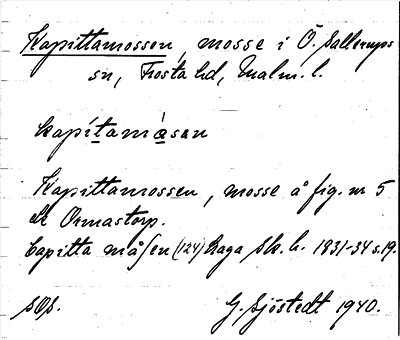 Kapittamossen, mosse i Ö. Sallerups
sn, Frosta hd, Malm. l.
kapítamòsan
Kapittamossen, mosse å fig. nr 5
 Ormastorp.
Capitta måsen (124) Laga sk. h. 1831-34 s. 19.
sOs. G. Sjöstedt 1940.